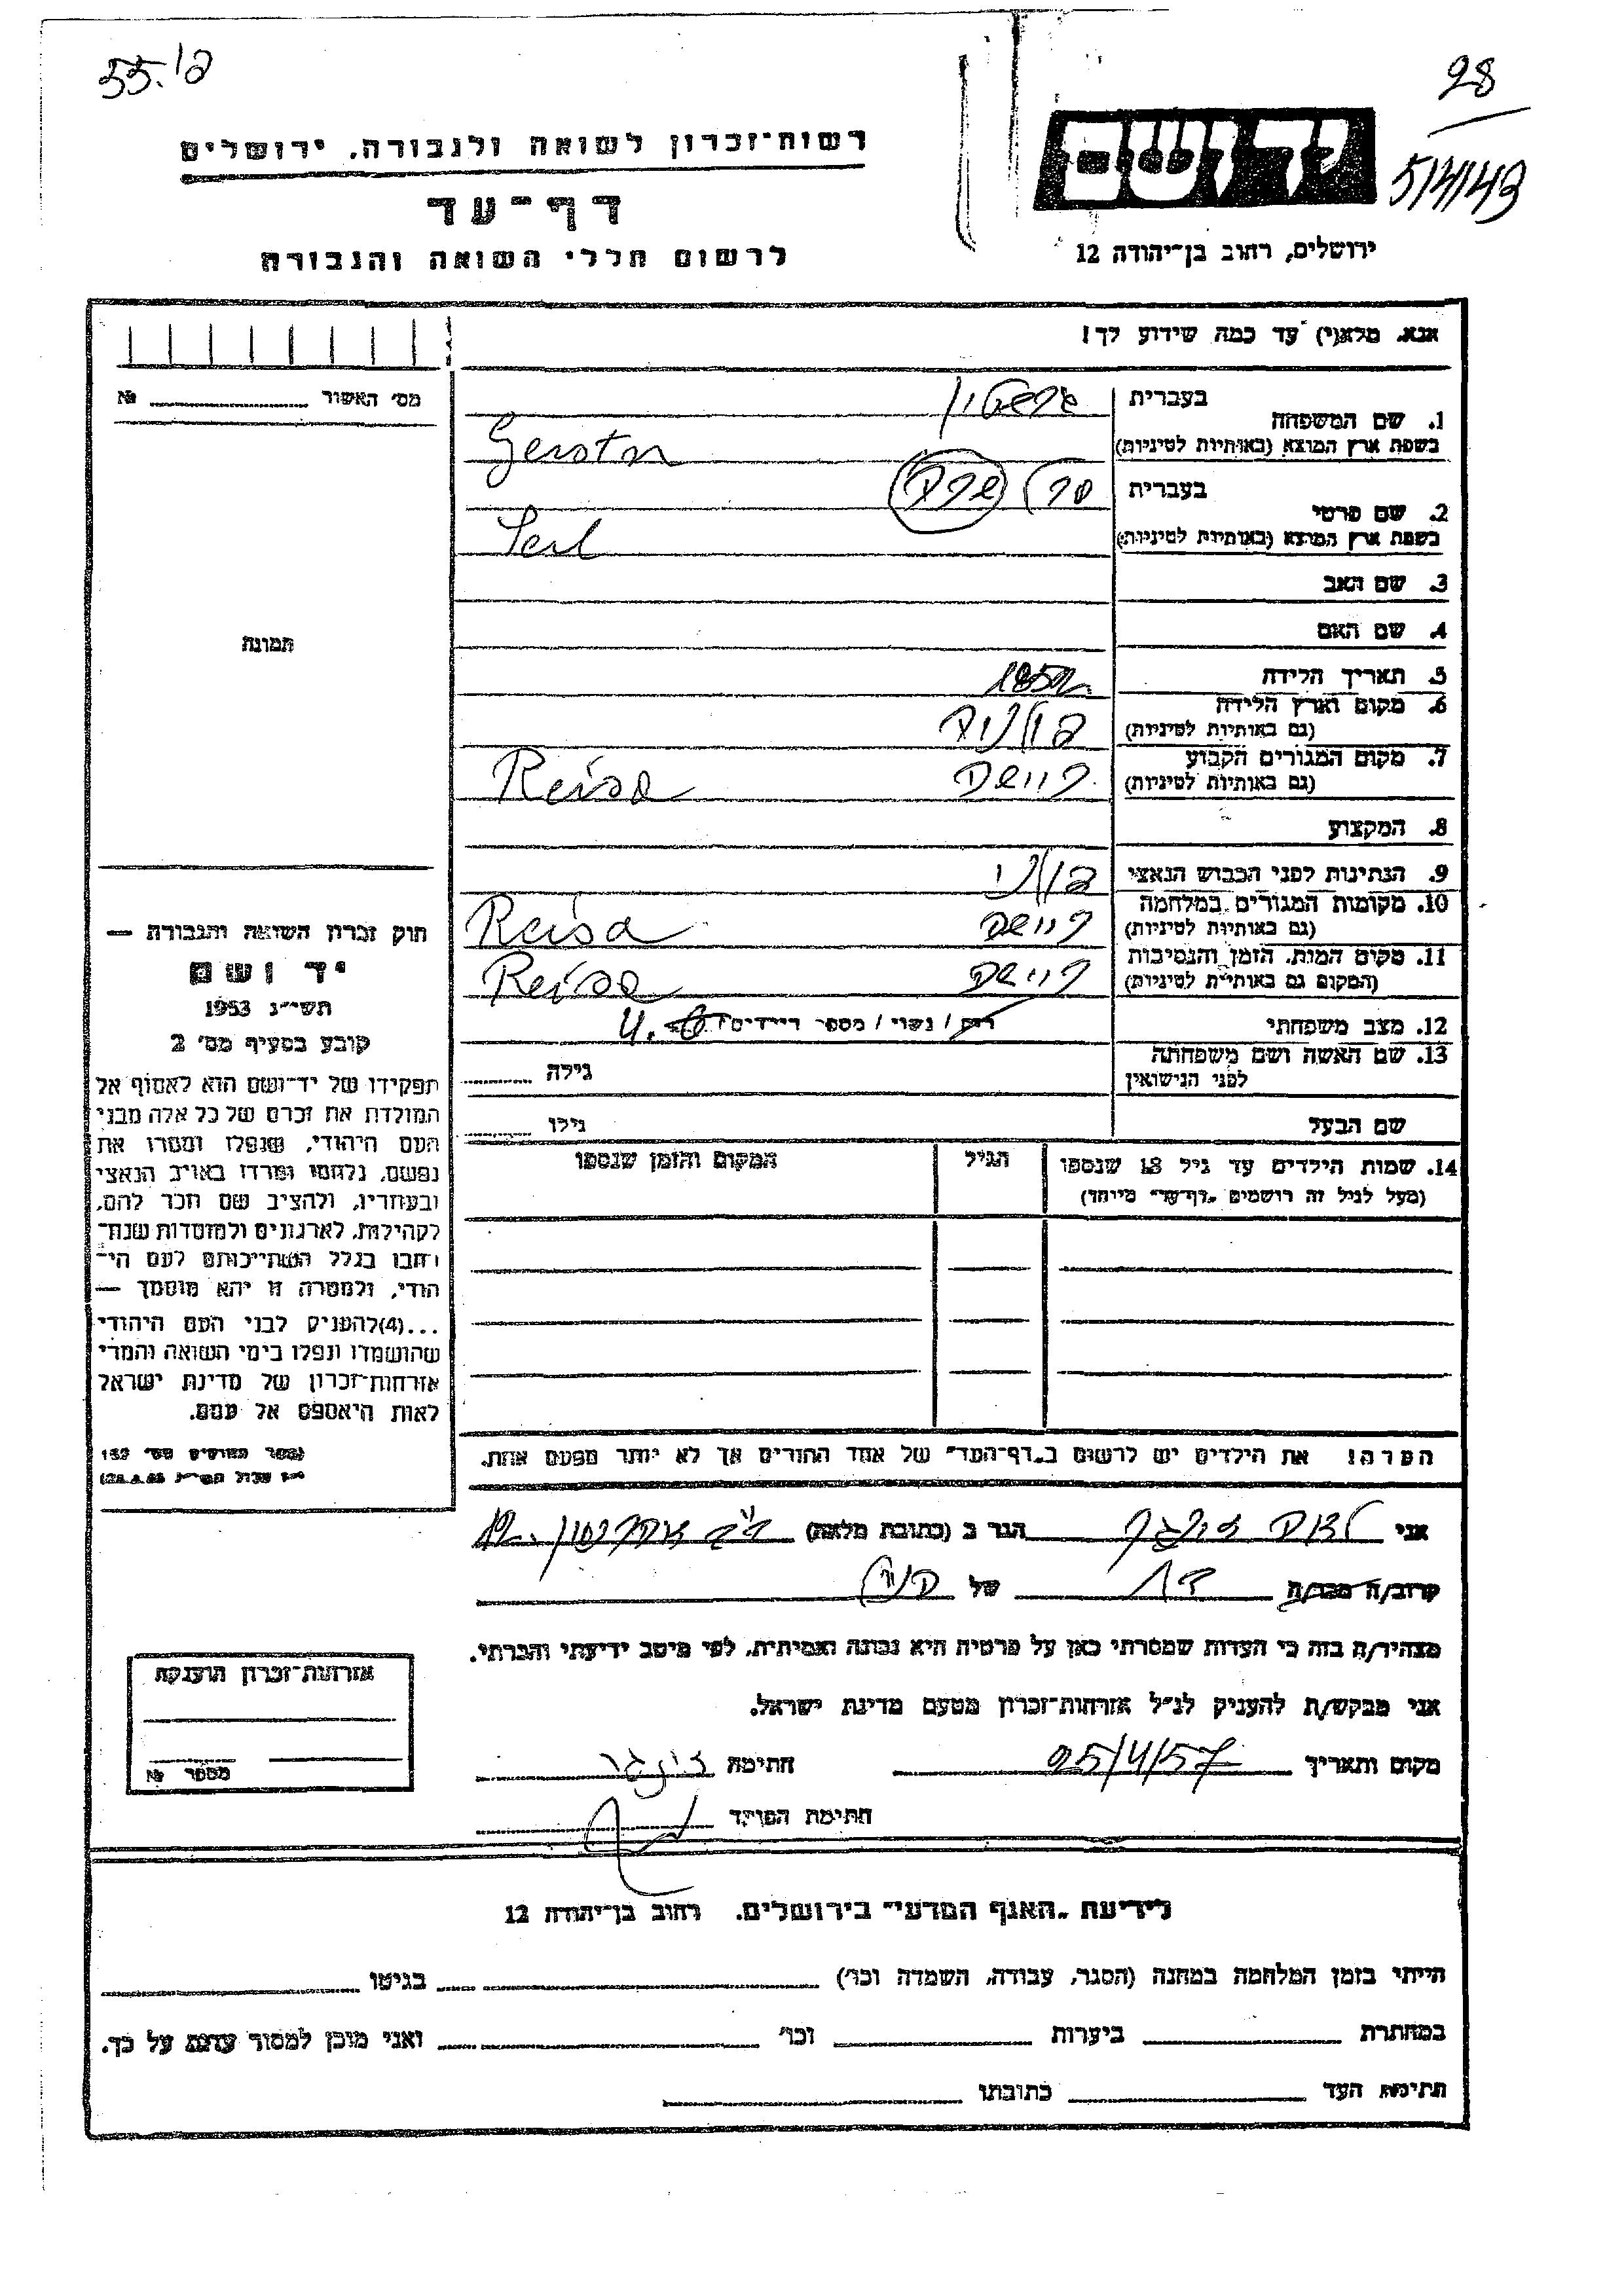 55.12
28
רשות־זכרון לשואה ולגבורה. ירושלים
יד ושם
5/4/43
דף־עד
לרשום חללי השואה והגבורה
ירושלים, רחוב בן־יהודה 12
אנא. מלא(י) עד כמה שידוע לך!
מס' האשור № 
1. שם המשפחה
בעברית גרשטין
בשפת ארץ המוצא (באותיות לטיניות) Gerstn
2. שם פרטי
בעברית
בשפת ארץ המוצא (באותיות לטיניות) Serl
3. שם האב
4. שם האם
תמונה
5. תאריך הלידה
6. מקום וארץ הלידה
(גם באותיות לטיניות) פולניה
7. מקום המגורים הקבוע
(גם באותיות לטיניות) ריישה Reisa
8. המקצוע
9. הנתינות לפני הכבוש הנאצי פולני
10. מקומות המגורים במלחמה
(גם באותיות לטיניות) ריישה Reisa
11. מקום המות. הזמן והנסיבות
(המקום גם באותיות לטיניות) ריישה Reisa
12. מצב משפחתי רוק / נשוי / מספר הילדים 4.
13. שם האשה ושם משפחתה
לפני הנישואין גילה
שם הבעל גילו
14. שמות הילדים עד גיל 18 שנספו הגיל המקום והזמן שנספו
(מעל לגיל זה רושמים „דף־עד" מיוחד)
חוק זכרון השואה והגבורה —
יד ושם
תשי״ג 1953
קובע בסעיף מס' 2
תפקידו של יד־ושם הוא לאסוף אל
המולדת את זכרם של כל אלה מבני
העם היהודי, שנפלו ומסרו את
נפשם, נלחמו ומרדו באויב הנאצי
ובעוזריו, ולהציב שם וזכר להם,
לקהילות, לארגונים ולמוסדות שנח־
רבו בגלל השתייכותם לעם הי־
הודי, ולמטרה זו יהא מוסמך —
...(4)להעניק לבני העם היהודי
שהושמדו ונפלו בימי השואה והמרי
אזרחות־זכרון של מדינת ישראל
לאות היאספם אל עמם.
(ספר החוקים מס' 132
הערה! את הילדים יש לרשום ב„דף־העד" של אחד ההורים אך לא יותר מפעם אחת.
אני הגר ב (כתובת מלאה)
קרוב/ה מכר/ה של
מצהיר/ה בזה כי העדות שמסרתי כאן על פרטיה היא נכונה ואמיתית, לפי מיטב ידיעתי והכרתי.
אני מבקש/ת להעניק לנ״ל אזרחות־זכרון מטעם מדינת ישראל.
אזרחות־זכרון הוענקה
מספר №
מקום ותאריך 25/4/57 חתימה
חתימת הפוקד
לידיעת „האגף המדעי" בירושלים. רחוב בן־יהודה 12
הייתי בזמן המלחמה במחנה (הסגר, עבודה, השמדה וכו') בגיטו
במחתרת ביערות וכו' ואני מוכן למסור עדות על כך.
חתימת העד כתובתו